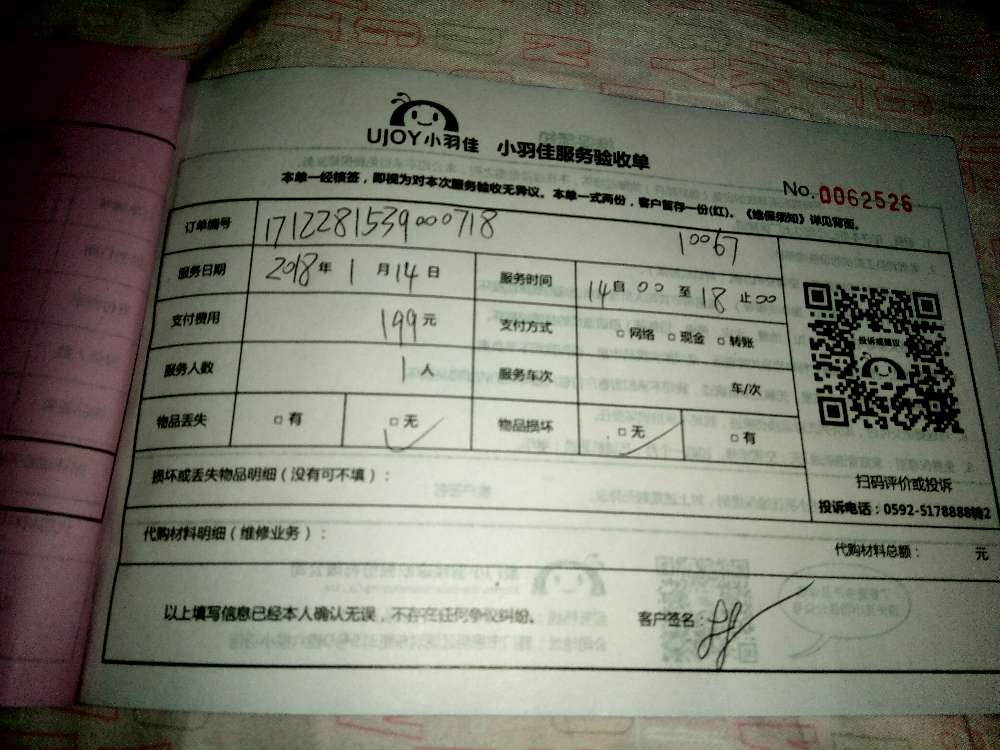 UJOY小羽佳 小羽佳服务验收单
No.0062526
本单一经核签，即视为对本次服务验收无异议。本单一式两份，客户留存一份(红)。《维保须知》详见背面。
订单编号 1712281539000718 10067
服务日期 2018年 1月14日 服务时间 14自00至18止00
支付费用 199元 支付方式 □网络 □现金 □转账
服务人数 1人 服务车次 车/次
物品丢失 □有 □无 物品损坏 □无 □有
投诉或建议
扫码评价或投诉
投诉电话：0592-5178888转2
损坏或丢失物品明细（没有可不填）：
代购材料明细（维修业务）：
代购材料总额： 元
以上填写信息已经本人确认无误，不存在任何争议纠纷。 客户签名：